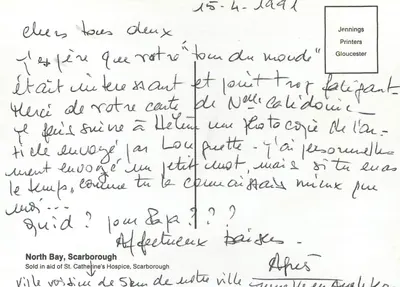 15-4-1991
Jennings
Printers
Gloucester
chers tous deux
j'espère que votre "tour du monde"
était intéressant et point trop fatigant.
Merci de votre carte de Nelle Calédonie -
je fais suivre à Hélène une photocopie de l'ar-
ticle envoyé par - j'ai personnelle
ment envoyé un petit mot, mais si tu en as
le temps, comme tu le connaissais mieux que
moi...
Quid? pour Papa???
Affectueux baisers.
North Bay, Scarborough
Sold in aid of St. Catherine's Hospice, Scarborough
Après
ville voisine de de notre ville